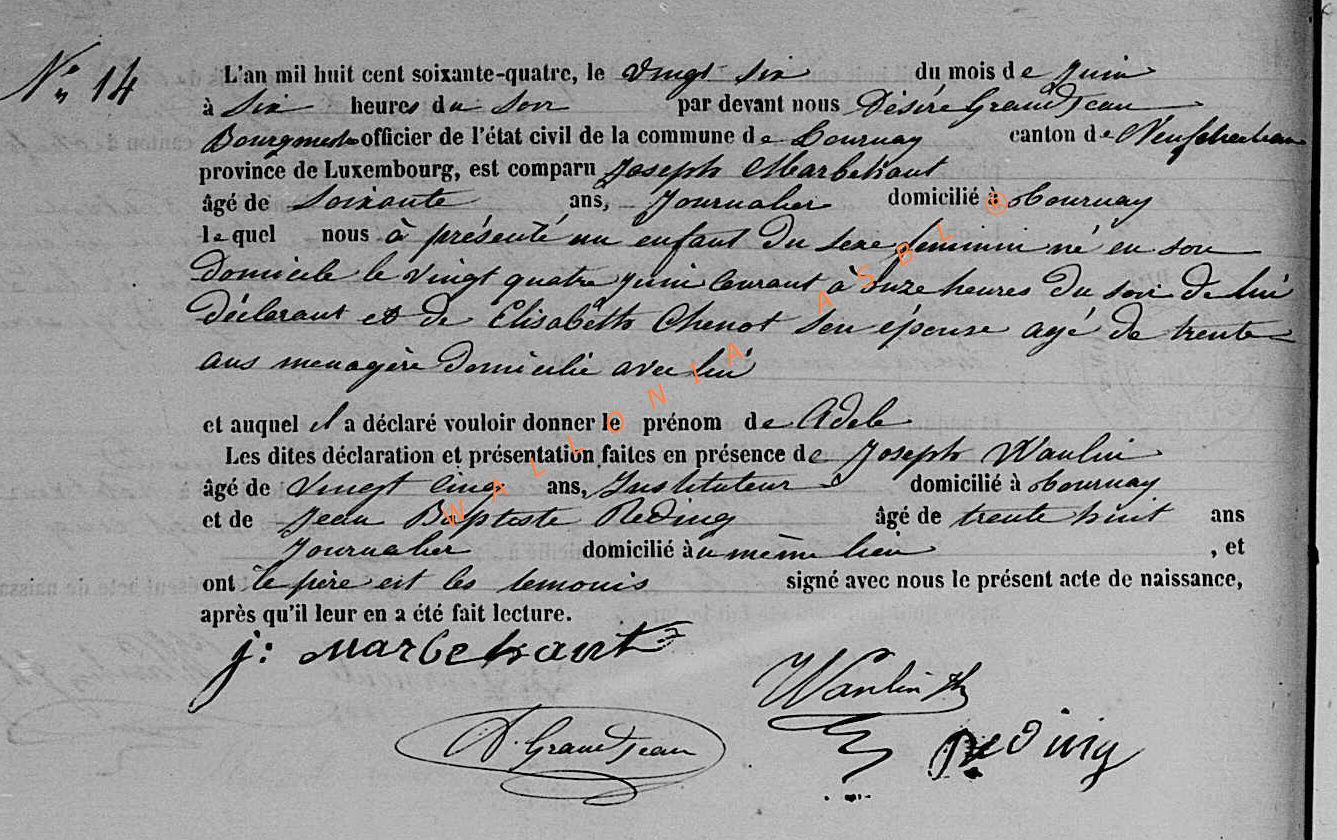 N° 14
L'an mil huit cent soixante-quatre, le vingt six du mois de Juin
à Six heures du Soir par devant nous Désiré Grandjean
Bourgmestre officier de l'état civil de la commune de Tournay canton de Neufchateau
province de Luxembourg, est comparu Joseph Marbehant
âgé de Soixante ans, Journalier domicilié à Tournay
lequel nous à présenté un enfant du sexe feminin né en son
domicile le vingt quatre juin courant à onze heures du soir de lui
déclarant et de Elisabeth Chenot son épouse agé de trente
ans menagère domicilié avec lui
et auquel il a déclaré vouloir donner le prénom de Adele
Les dites déclaration et présentation faites en présence de Joseph Wanlin
âgé de Vingt Cinq ans, Instituteur domicilié à Tournay
et de Jean Baptiste Reding âgé de trente huit ans
Journalier domicilié à u même lieu , et
ont le père est les temouis signé avec nous le présent acte de naissance,
après qu'il leur en a été fait lecture.
j: Marbehant
Wanlin Jh
D. Grandjean
Reding
WALLONIA ASBL ®